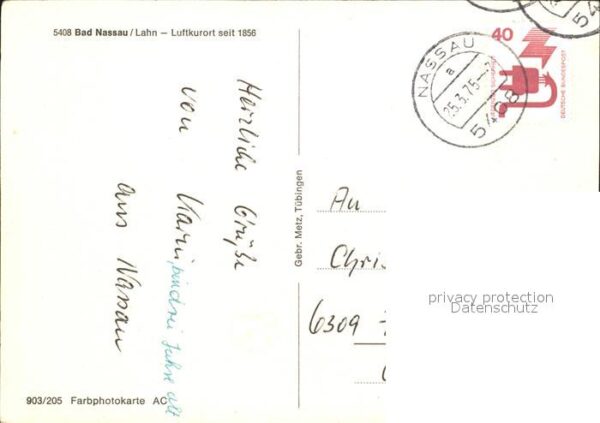 5408 Bad Nassau / Lahn – Luftkurort seit 1856
Herzliche Grüße
von Karin,
sind drei Jahre alt
aus Nassau
903/205 Farbphotokarte AC
Gebr. Metz, Tübingen
40
NASSAU
a
25.3.75
5408
DEUTSCHE BUNDESPOST
An
Chri
6309
privacy protection
Datenschutz